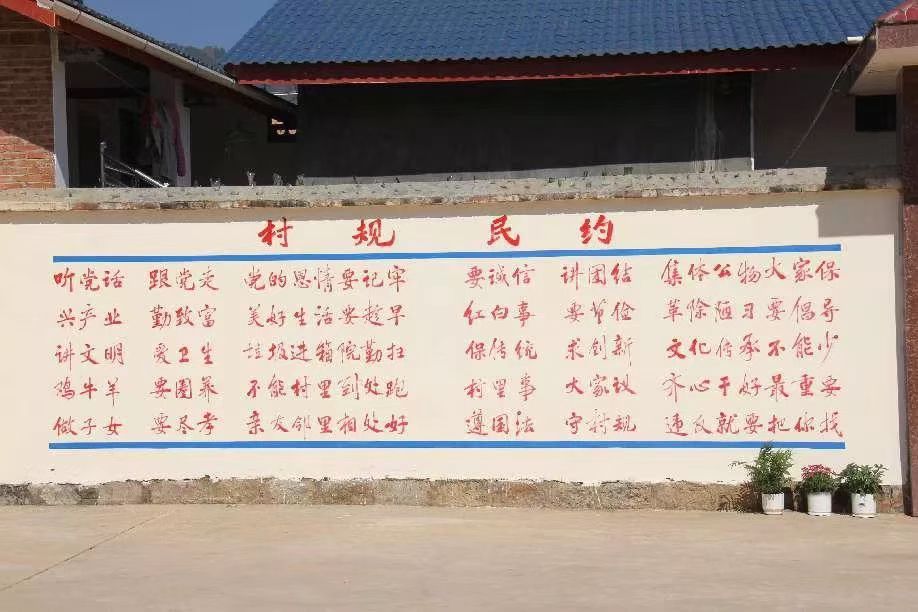 村规民约
听党话 跟党走 党的恩情要记牢
兴产业 勤致富 美好生活要趁早
讲文明 爱卫生 垃圾进箱院勤扫
鸡牛羊 要圈养 不能村里到处跑
做子女 要尽孝 亲友邻里相处好
要诚信 讲团结 集体公物大家保
红白事 要节俭 革除陋习要倡导
保传统 求创新 文化传承不能少
村里事 大家议 齐心干好最重要
遵国法 守村规 违反就要把你找